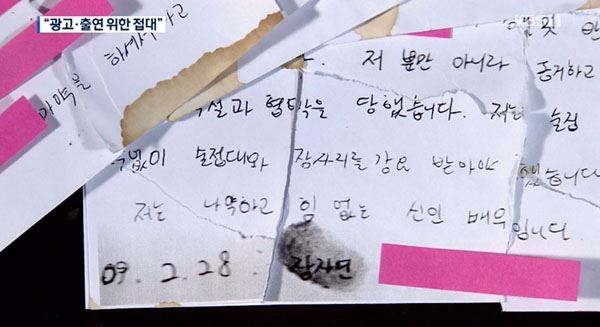 “광고·출연 위한 접대”
하까주하고
마약을
저 뿐만 아니라
증거하고
욕설과 협박을 당했습니다. 저는 술접
없이 술접대와 잠자리를 강요 받아야 했습니다
저는 나약하고 힘 없는 신인 배우입니다.
09. 2. 28. 장자연